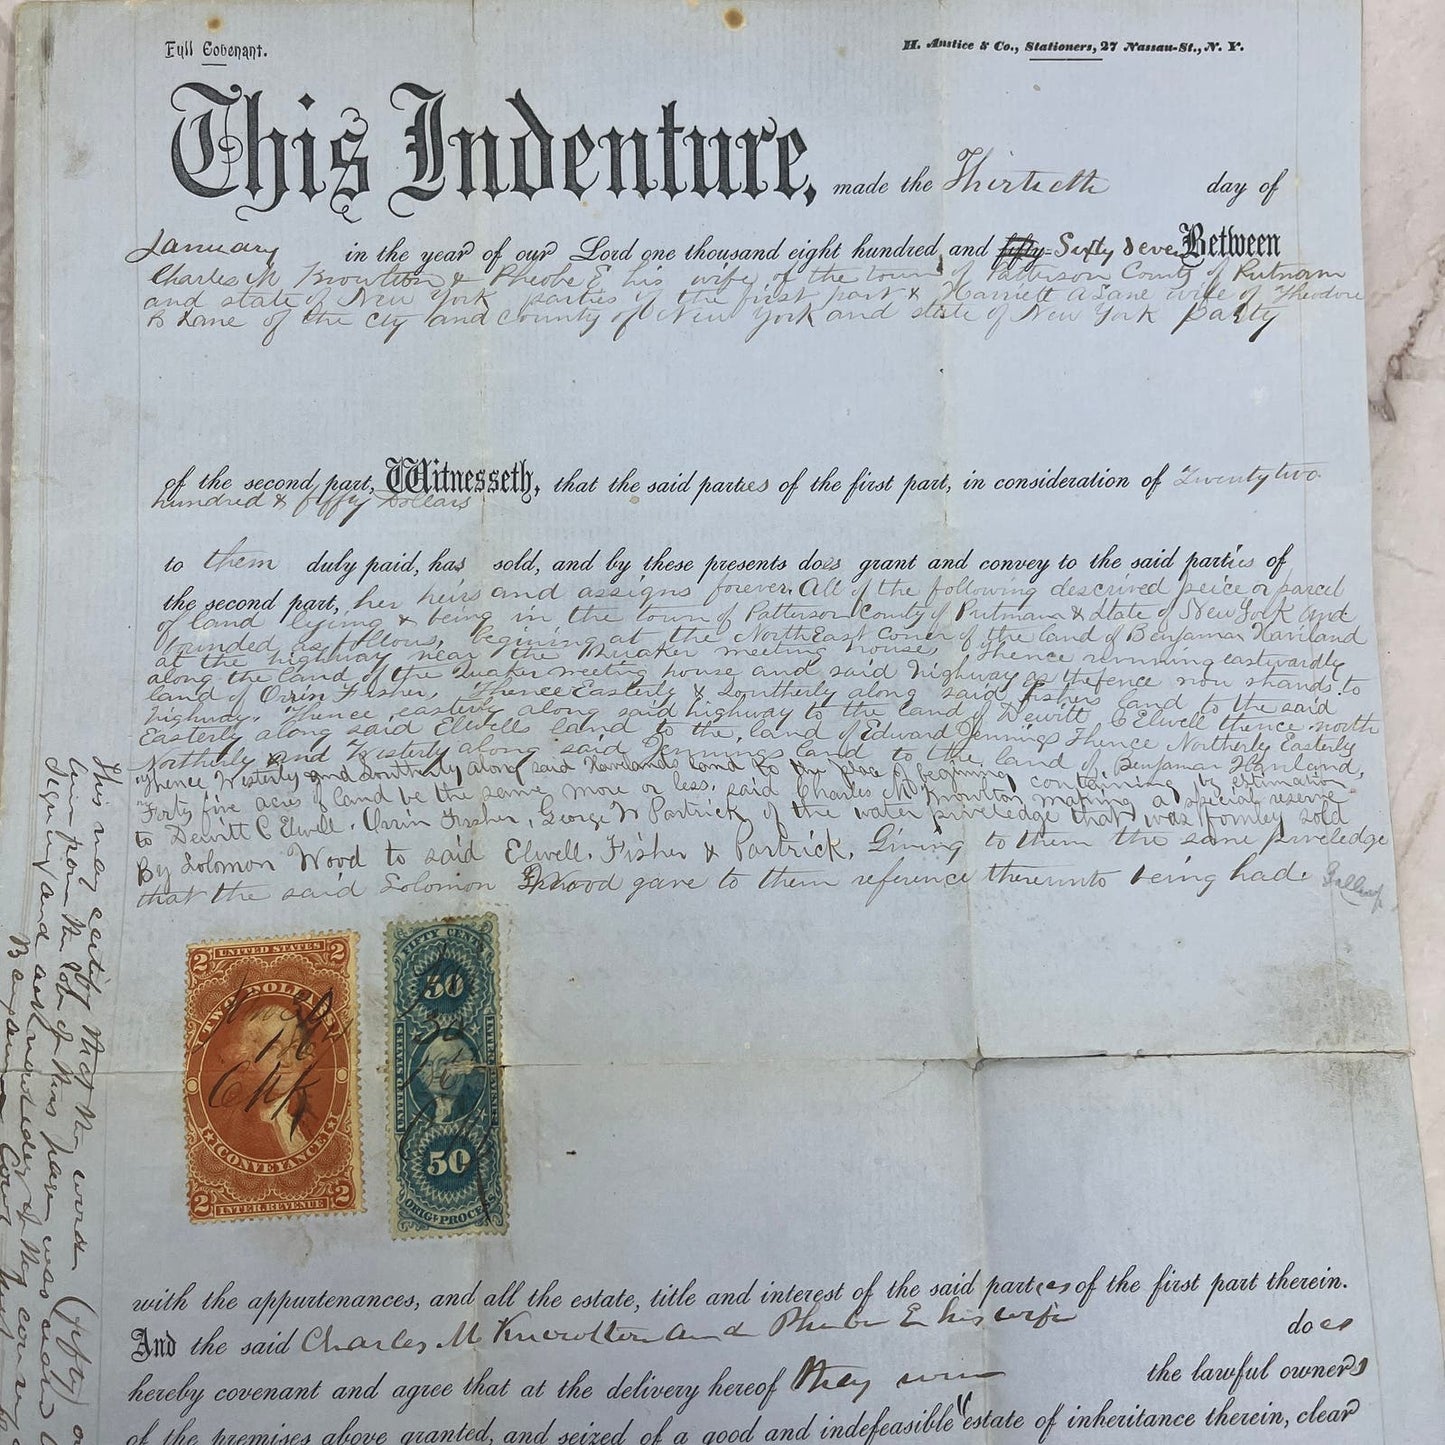 Full Covenant.
H. Anstice & Co., Stationers, 27 Nassau-St., N. Y.
This Indenture, made the Thirtieth day of
January in the year of our Lord one thousand eight hundred and fifty Sixty Seven Between
Charles M & Pheobe E his wife of the town of Patterson County of Putnam
and state of New York parties of the first part & Harriett A Lane wife of Theodore
B Lane of the cty and County of New York and state of New York Party
of the second part, Witnesseth, that the said parties of the first part, in consideration of Twenty two
hundred & fiffty Dollars
to them duly paid, has sold, and by these presents does grant and convey to the said parties of
the second part, her heirs and assigns forever. All of the following descrived peice or parcel
of land lying & being in the town of Patterson County of Putnam & State of New York and
bounded as follows, Begining at the North East Coner of the land of Benjaman Haviland
at the highway near the Quaker meeting house, Thence running eastwardly
along the land of the Quaker meeting house and said highway as thefence now stands to
land of Orrin Fisher, Thence Easterly & Southerly along said Fishers land to the said
highway. Thence easterly along said highway to the land of Dewitt C Elwell thence north
Easterly along said Elwells land to the land of Edward Jennings Thence Northerly Easterly
Northerly and Westerly along said Jennings land to the land of Benjaman Haviland,
Thence Westerly and Southerly along said Havilands land to the place of begening containing by estimation
Forty five acres of land be the same more or less. said Charles M making a special reserve
to Dewitt C Elwell. Orrin Fisher, George W Partrick, of the water priveledge that was fomley sold
By Solomon Wood to said Elwell. Fisher & Partrick. Giving to them the same priveledge
that the said Solomon Wood gave to them reference thereunto being had.
2 UNITED STATES 2
TWO DOLLARS
CONVEYANCE
2 INTER. REVENUE 2
FIFTY CENTS
50
UNITED STATES
INTER. REVENUE
50
ORIG'L PROCESS
with the appurtenances, and all the estate, title and interest of the said parties of the first part therein.
And the said Charles M Knowlton and Pheobe E his wife does
hereby covenant and agree that at the delivery hereof they were the lawful owners
of the premises above granted, and seized of a good and indefeasible estate of inheritance therein, clear
This may certify that the word (fifty)